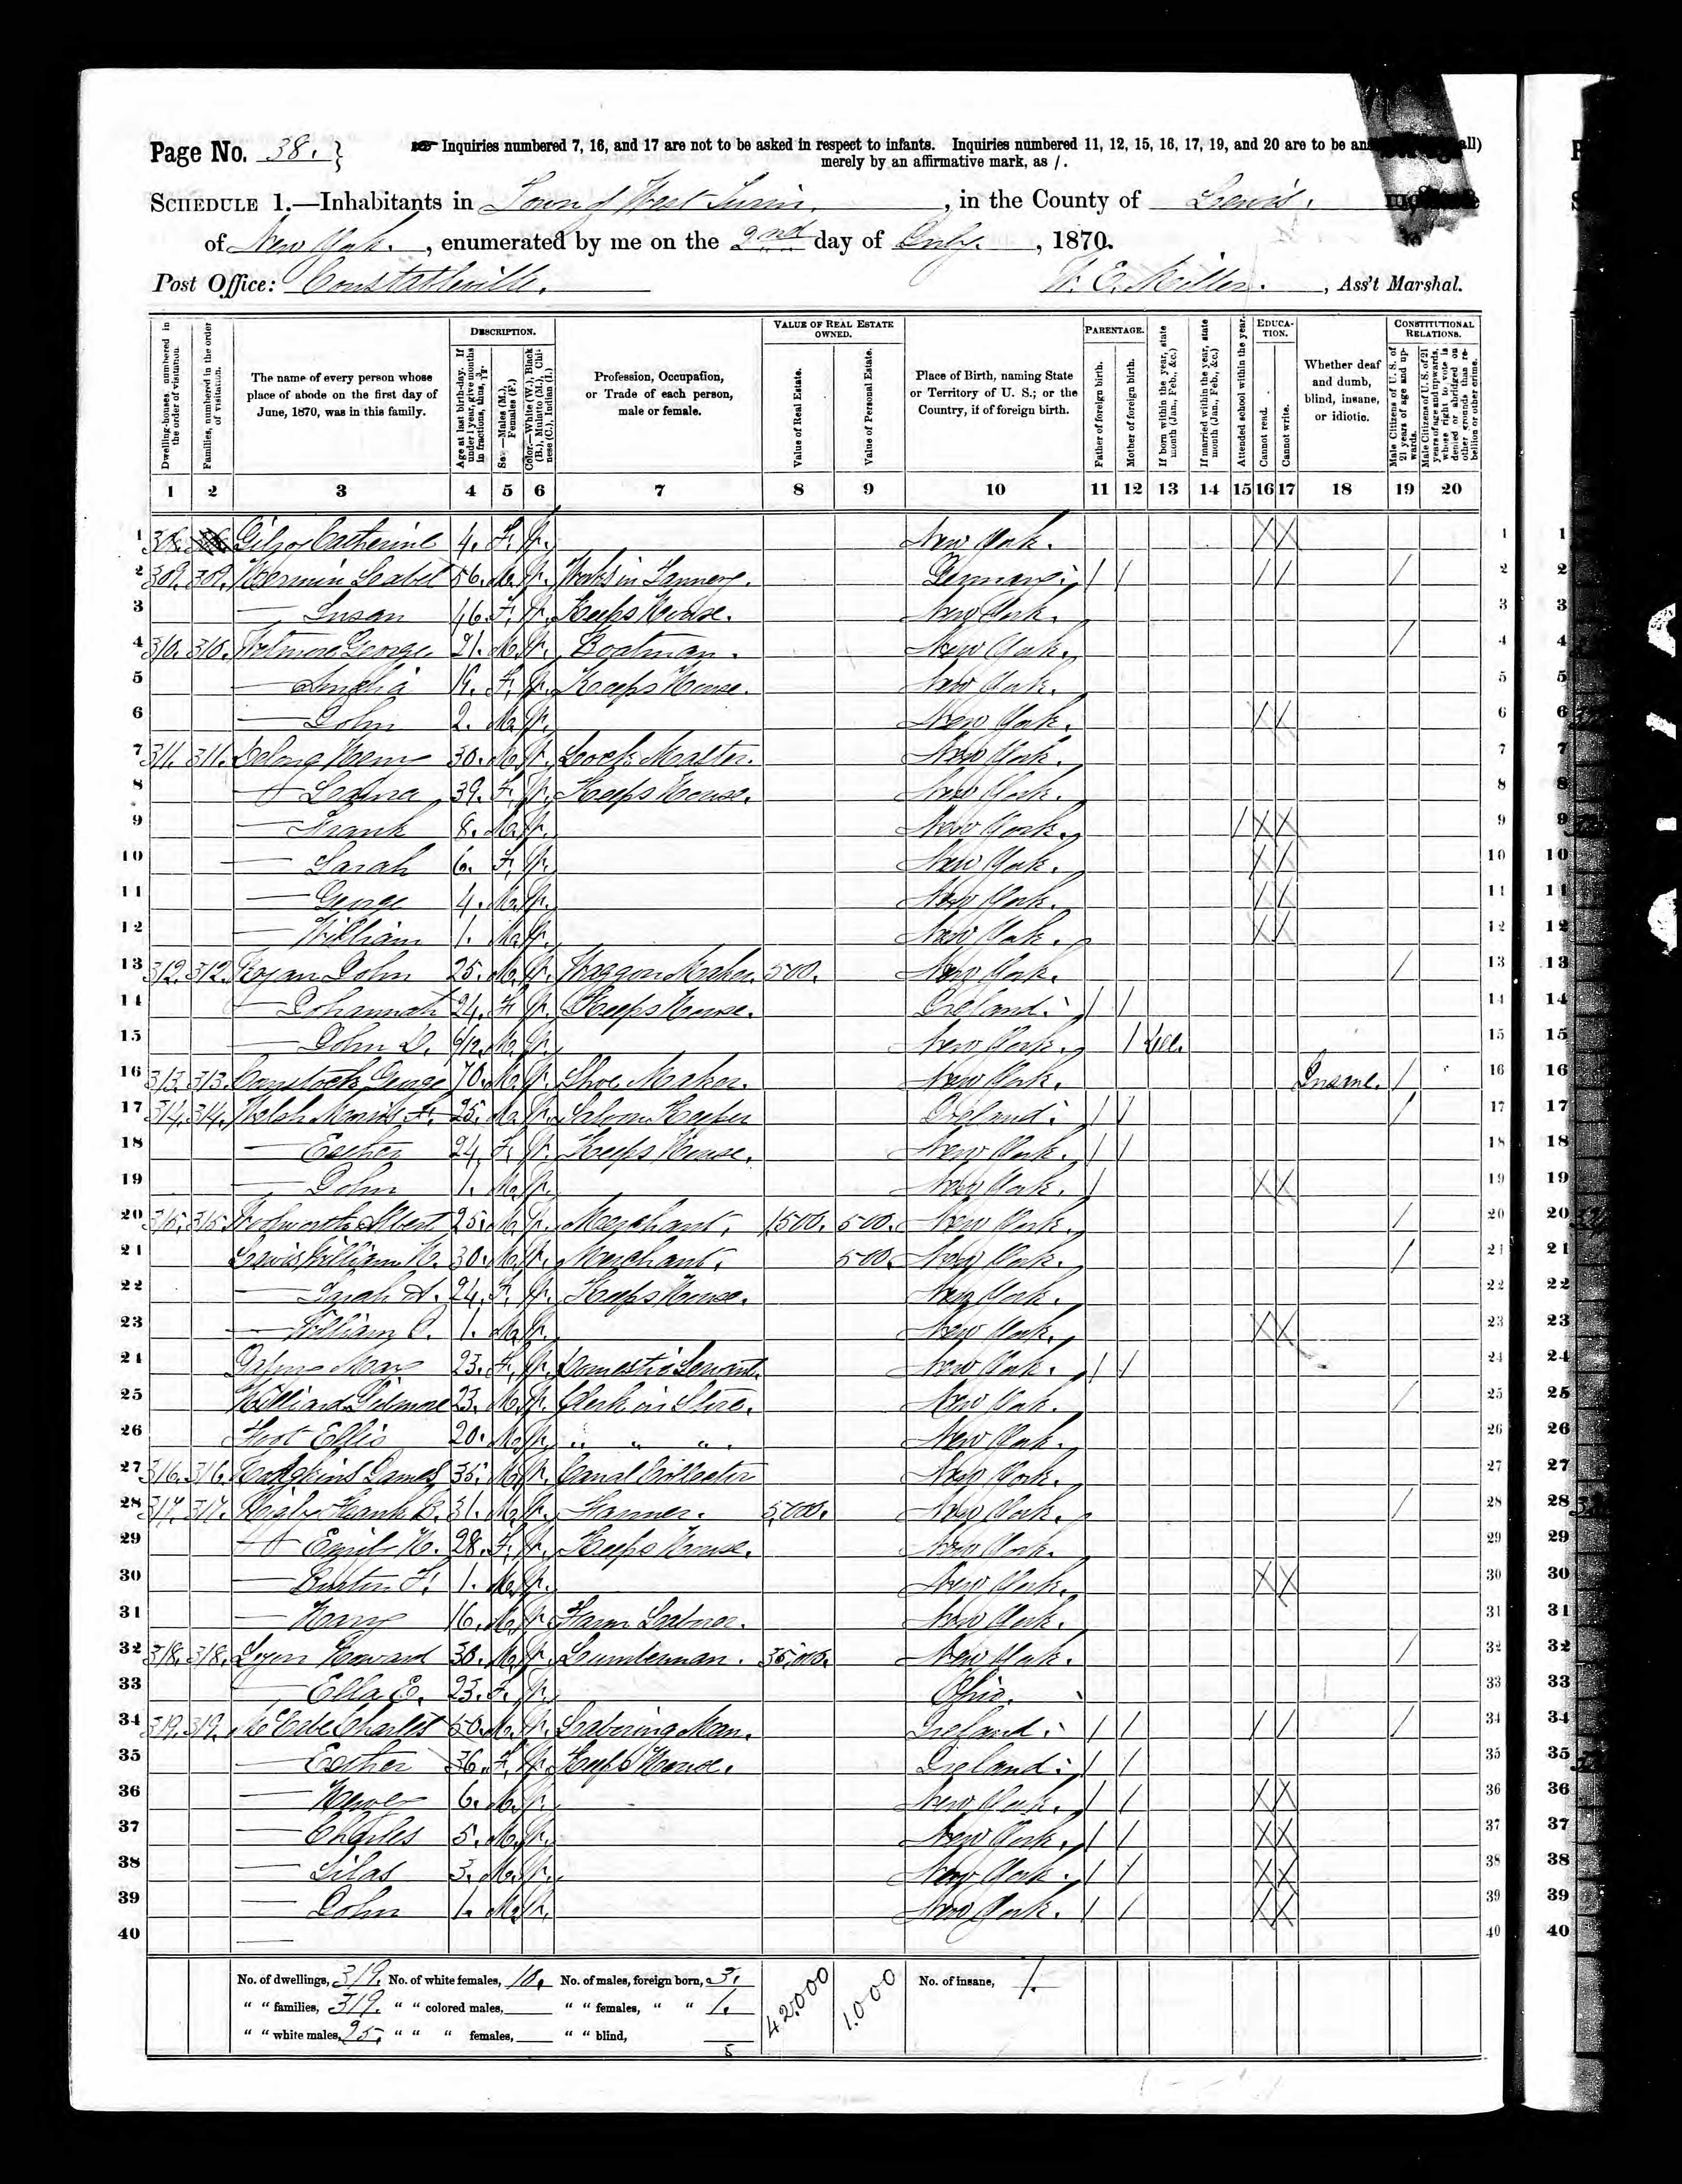 Page No. 38. }
Inquiries numbered 7, 16, and 17 are not to be asked in respect to infants. Inquiries numbered 11, 12, 15, 16, 17, 19, and 20 are to be an all)
merely by an affirmative mark, as /.
SCHEDULE 1.—Inhabitants in Town of West Turin, in the County of Lewis.
of New York., enumerated by me on the 2nd day of July., 1870.
Post Office: Constableville. W. E. Miller., Ass't Marshal.
Dwelling-houses, numbered in the order of visitation.
Families, numbered in the order of visitation.
The name of every person whose place of abode on the first day of June, 1870, was in this family.
DESCRIPTION.
Age at last birth-day. If under 1 year, give months in fractions, thus, 3/12.
Sex.—Males (M.), Females (F.)
Color.—White (W.), Black (B.), Mulatto (M.), Chinese (C.), Indian (I.)
Profession, Occupation, or Trade of each person, male or female.
VALUE OF REAL ESTATE OWNED.
Value of Real Estate.
Value of Personal Estate.
Place of Birth, naming State or Territory of U. S.; or the Country, if of foreign birth.
PARENTAGE.
Father of foreign birth.
Mother of foreign birth.
If born within the year, state month (Jan., Feb., &c.)
If married within the year, state month (Jan., Feb., &c.)
Attended school within the year.
EDUCATION.
Cannot read.
Cannot write.
Whether deaf and dumb, blind, insane, or idiotic.
CONSTITUTIONAL RELATIONS.
Male Citizens of U. S. of 21 years of age and upwards.
Male Citizens of U. S. of 21 years of age and upwards, whose right to vote is denied or abridged on other grounds than rebellion or other crime.
1 2 3 4 5 6 7 8 9 10 11 12 13 14 15 16 17 18 19 20
1 Catherine 4. F. W. New York. / / 1
2 309. 309. 56. M. W. Works in Tannery. Germany / / / / / 2
3 — Susan 46 F. W. Keeps House. New York. 3
4 310. 310. George 21. M. W. Boatman. New York. / 4
5 — 19. F. W. Keeps House. New York. 5
6 — John 2. M. W. New York. / / 6
7 311. 311. Delong Henry 30. M. W. Lock Master. New York. 7
8 — 39. F. W. Keeps House. New York. 8
9 — Frank 8. M. W. New York. / / / 9
10 — Sarah 6. F. W. New York. / / 10
11 — George 4. M. W. New York. / / 11
12 — William 1. M. W. New York. / / 12
13 312. 312. John 25. M. W. Waggon Maker. 500. New York. / 13
14 — Johannah 24. F. W. Keeps House. Ireland. / / 14
15 — John D. 6/12. M. W. New York. / 15
16 313. 313. Comstock George 70. M. W. Shoe Maker. New York. Insane. / 16
17 314. 314. Welsh 25. M. W. Saloon Keeper Ireland. / / / 17
18 — Esther 24. F. W. Keeps House. New York. / / 18
19 — John 1. M. W. New York. / / / 19
20 315. 315. Albert 25. M. W. Merchant. 1500. 500. New York. / 20
21 Lewis William H. 30. M. W. Merchant. 500. New York. / 21
22 — Sarah A. 24. F. W. Keeps House. New York. 22
23 — William 1. M. W. New York. / / 23
24 Mary 23. F. W. Domestic Servant. New York. / / 24
25 23. M. W. Clerk in Store. New York. / 25
26 Foot Ellis 20. M. W. " " ". New York. 26
27 316. 316. Hodgkins James 35. M. W. Canal Collector New York. 27
28 317. 317. Frank B. 31. M. W. 5,000. New York. / 28
29 — Emily H. 28. F. W. Keeps House. New York. 29
30 — Burton F. 1. M. W. New York. / / 30
31 — Harry 16. M. W. Farm Laborer. New York. 31
32 318. 318. Lyon Howard 30. M. W. Lumberman. 35,000. New York. / 32
33 — Ella E. 23. F. W. Ohio. 33
34 319. 319. Charles 50. M. W. Laboring Man. Ireland. / / / / / 34
35 — Esther 36. F. W. Keeps House. Ireland. / / 35
36 — 6. M. W. New York. / / / / 36
37 — Charles 5. M. W. New York. / / / / 37
38 — Silas 3. M. W. New York. / / / / 38
39 — John 1. M. W. New York. / / / / 39
40 — 40
No. of dwellings, 319. No. of white females, No. of males, foreign born, 3. 42,000 1,000 No. of insane, 1.
" " families, 319. " " colored males, " " females, " " 1.
" " white males, 25. " " " females, " " blind,
5